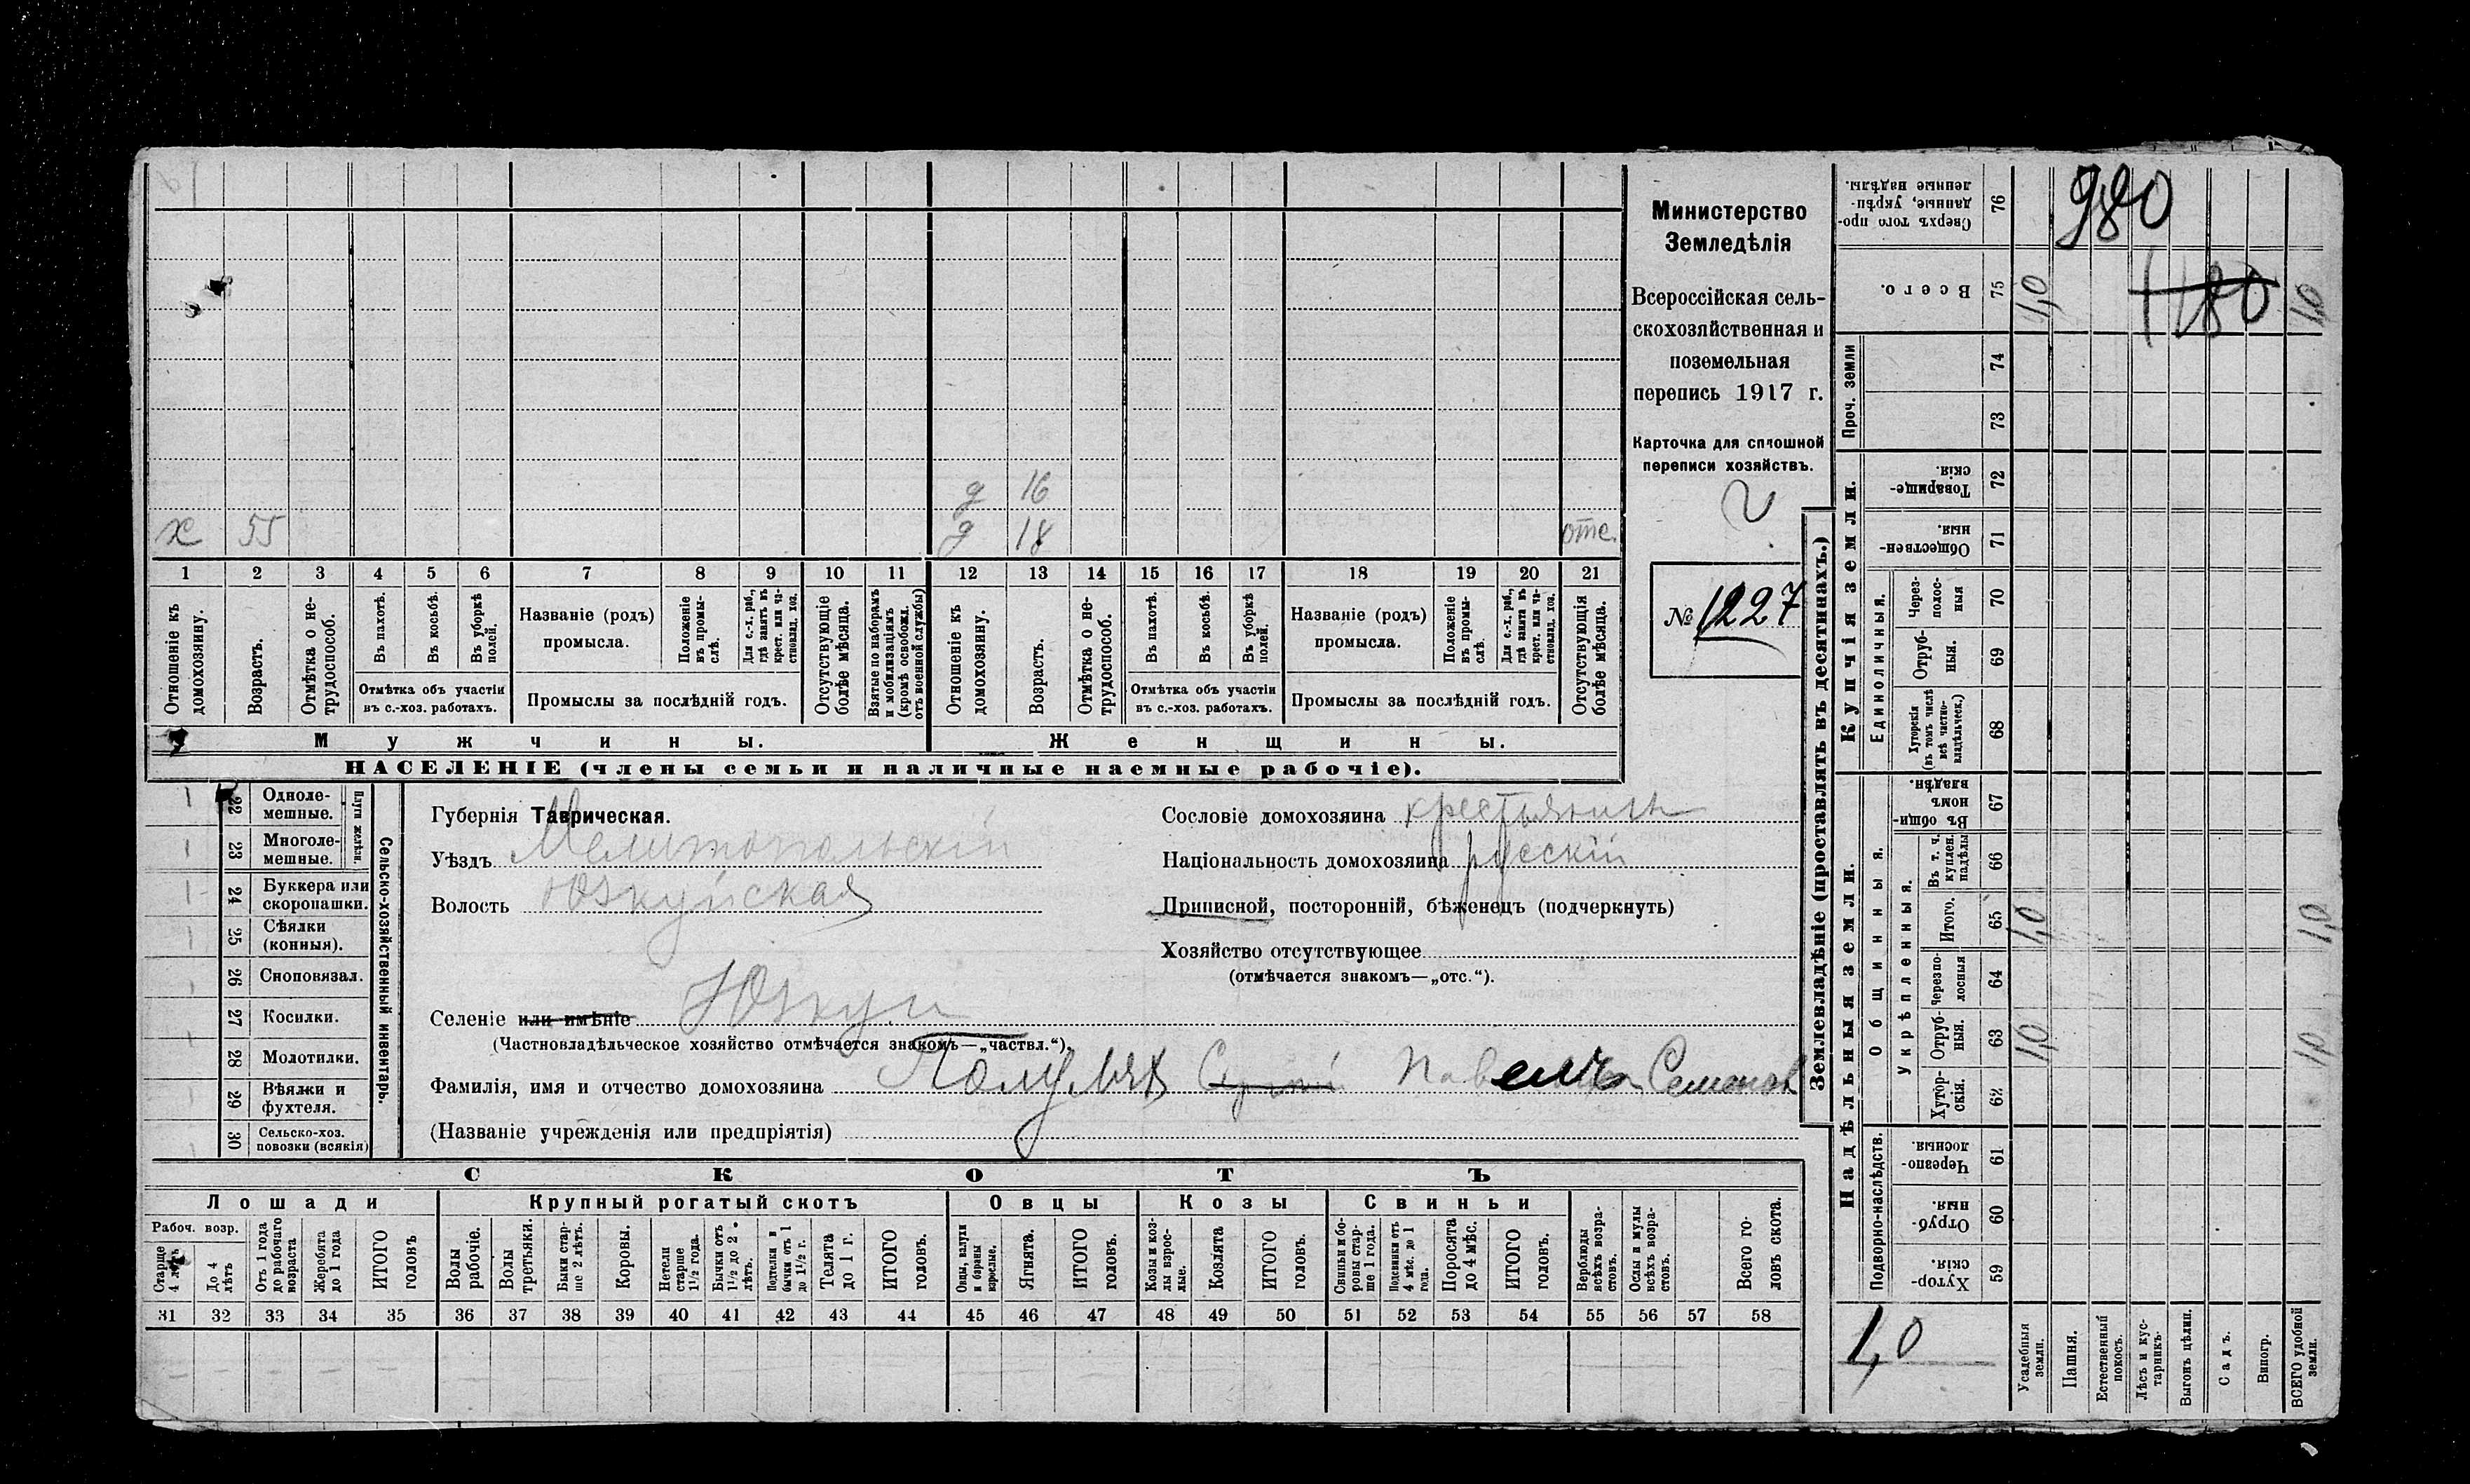 980
1180
Министерство
Земледѣлія
Всероссійская сель-
скохозяйственная и
поземельная
перепись 1917 г.
Карточка для сплошной
переписи хозяйствъ.
№ 1227
д 16
х 55 д 18 отс.
1 2 3 4 5 6 7 8 9 10 11 12 13 14 15 16 17 18 19 20 21
Отношеніе къ домохозяину.
Возрастъ.
Отмѣтка о не-трудоспособ.
Въ пахотѣ.
Въ косьбѣ.
Въ уборкѣ полей.
Отмѣтка объ участіи
въ с.-хоз. работахъ.
Названіе (родъ)
промысла.
Положеніе въ промы-слѣ.
Для с.-х. раб., гдѣ занятъ въ крест. или ча-стновлад. хоз.
Промыслы за послѣдній годъ.
Отсутствующіе болѣе мѣсяца.
Взятые по наборамъ и мобилизаціямъ (кромѣ освобожд. отъ военной службы)
Отношеніе къ домохозяину.
Возрастъ.
Отмѣтка о не-трудоспособ.
Въ пахотѣ.
Въ косьбѣ.
Въ уборкѣ полей.
Отмѣтка объ участіи
въ с.-хоз. работахъ.
Названіе (родъ)
промысла.
Положеніе въ промы-слѣ.
Для с.-х. раб., гдѣ занята въ крест. или ча-стновлад. хоз.
Промыслы за послѣдній годъ.
Отсутствующія болѣе мѣсяца.
Мужчины. Женщины.
НАСЕЛЕНІЕ (члены семьи и наличные наемные рабочіе).
22 Одноле-мешные.
23 Многоле-мешные.
Плуги желѣзн.
24 Буккера или скоропашки.
25 Сѣялки (конныя).
26 Сноповязал.
27 Косилки.
28 Молотилки.
29 Вѣялки и фухтеля.
30 Сельско-хоз. повозки (всякія)
Сельско-хозяйственный инвентарь.
Губернія Таврическая.
Уѣздъ Мелитопольскій
Волость Юзкуйская
Селеніе или имѣніе Юзкуи
(Частновладѣльческое хозяйство отмѣчается знакомъ—„частвл.“).
Фамилія, имя и отчество домохозяина Семенов
(Названіе учрежденія или предпріятія)
Сословіе домохозяина крестьянинъ
Національность домохозяина русскій
Приписной, посторонній, бѣженецъ (подчеркнуть)
Хозяйство отсутствующее
(отмѣчается знакомъ—„отс.“).
СКОТЪ
Лошади Крупный рогатый скотъ Овцы Козы Свиньи
Рабоч. возр.
Старше 4 лѣтъ
До 4 лѣтъ
Отъ 1 года до рабочаго возраста
Жеребята до 1 года
ИТОГО головъ
Волы рабочіе.
Волы третьяки.
Быки стар-ше 2 лѣтъ.
Коровы.
Нетели старше 1½ года.
Бычки отъ 1½ до 2 лѣтъ.
Подтелки и бычки отъ 1 до 1½ г.
Телята до 1 г.
ИТОГО головъ.
Овцы, валухи и бараны взрослые.
Ягнята.
ИТОГО головъ.
Козы и коз-лы взрос-лые.
Козлята
ИТОГО головъ.
Свиньи и бо-ровы стар-ше 1 года.
Подсвинки отъ 4 мѣс. до 1 года.
Поросята до 4 мѣс.
ИТОГО головъ.
Верблюды всѣхъ возра-стовъ.
Ослы и мулы всѣхъ возра-стовъ.
Всего го-ловъ скота.
31 32 33 34 35 36 37 38 39 40 41 42 43 44 45 46 47 48 49 50 51 52 53 54 55 56 57 58
Землевладѣніе (проставлять въ десятинахъ.)
Надѣльныя земли. Купчія земли. Проч. земли
Подворно-наслѣдств.
Общинныя.
Укрѣпленныя.
Единоличныя.
Хутор-скія. 59
Отруб-ныя. 60
Черезпо-лосныя. 61
Хутор-скія. 62
Отруб-ныя. 63 1,0 1,0
Черезпо-лосныя 64
Итого. 65 1,0 1,0
Въ т. ч. куплен. надѣлы 66
Въ общи-номъ владѣн. 67
Хуторскія (въ томъ числѣ всѣ частно-владѣльческ.) 68
Отруб-ныя. 69
Через-полос-ныя 70
Обществен-ныя. 71
Товарище-скія. 72
73
74
Всего. 75 1,0 1,0
Сверхъ того про-данные, укрѣп-ленные надѣлы. 76
1,0
Усадебныя земли.
Пашня.
Естественный покосъ.
Лѣсъ и кус-тарникъ.
Выгонъ цѣлин.
Садъ.
Виногр.
ВСЕГО удобной земли.